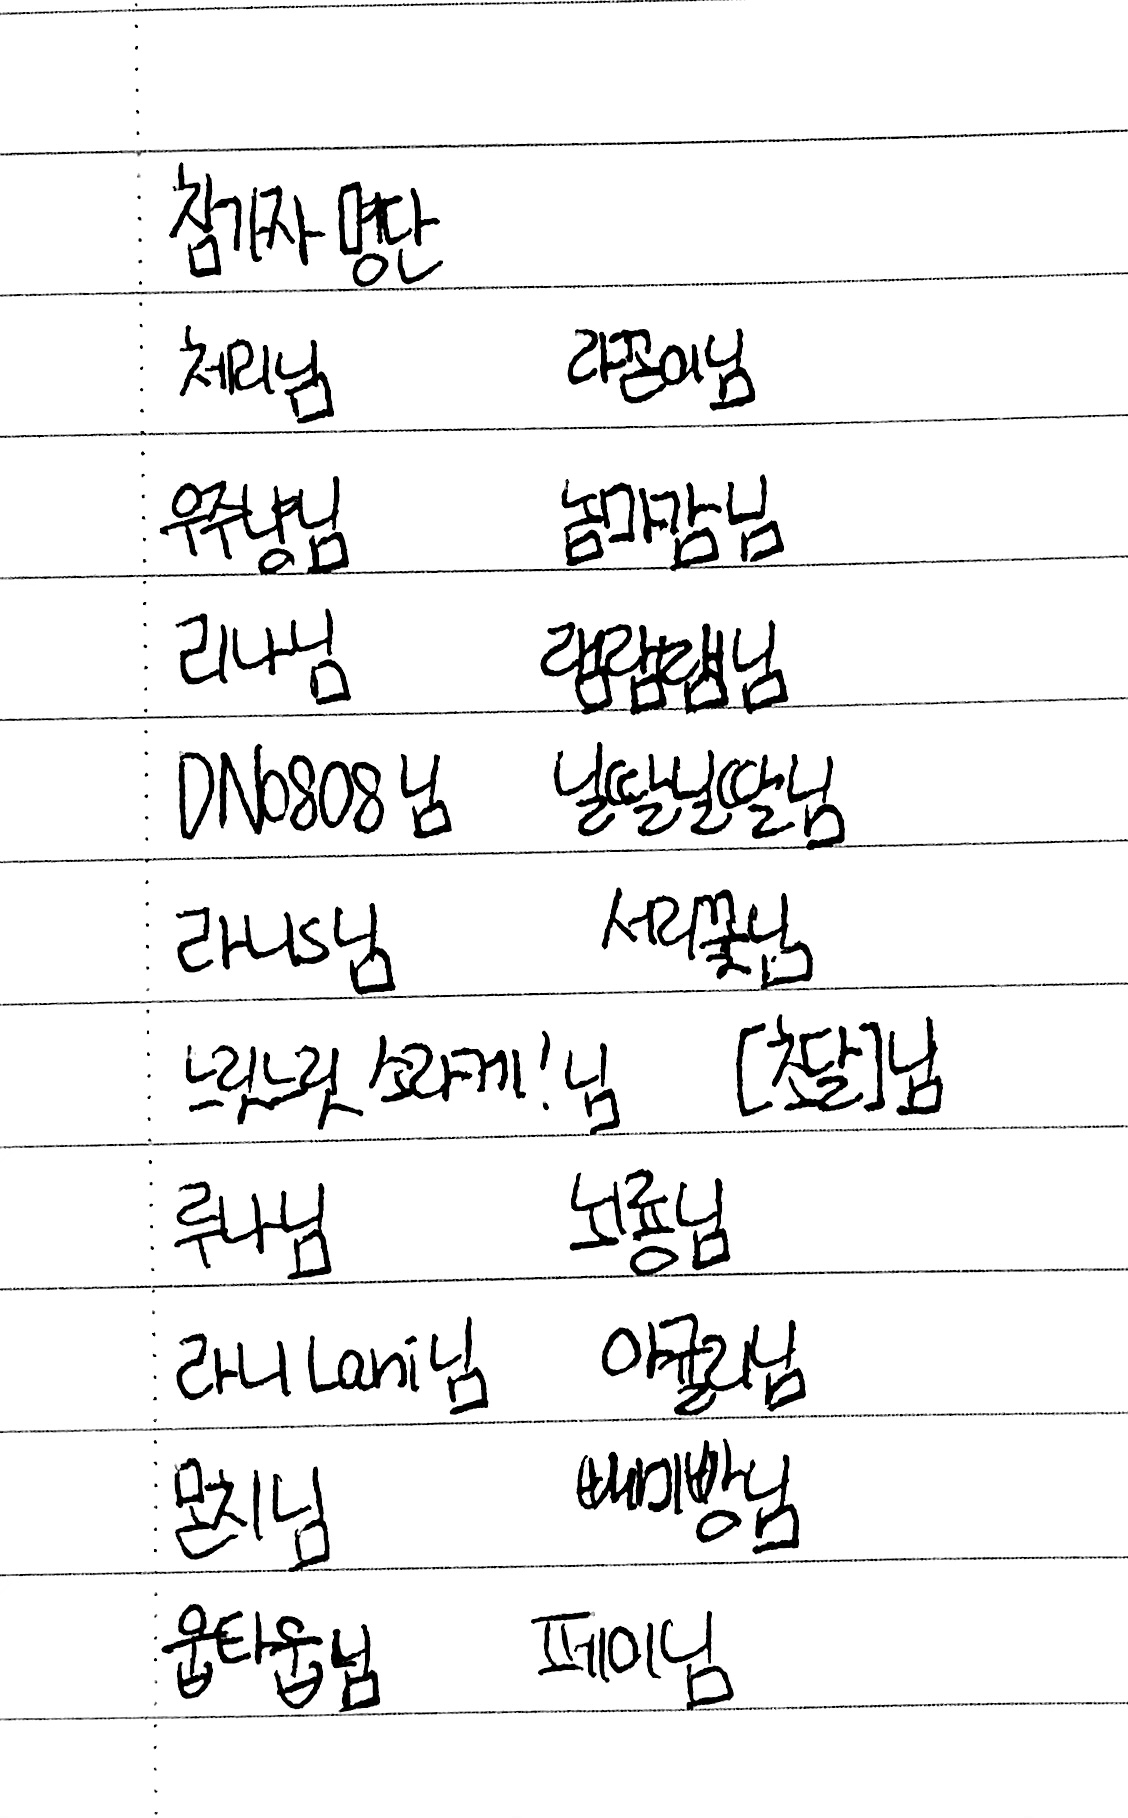 참가자 명단
체리님 라꽁이님
우주냥님 놈마감님
리나님 램램램님
DN0808님 널딸널딸님
라니s님 서리꽃님
느릿느릿 소라게!님 [초달]님
루나님 뇌룡님
라니Lani님 아귤리님
몬치님 빼미빵님
웁타웁님 페이님